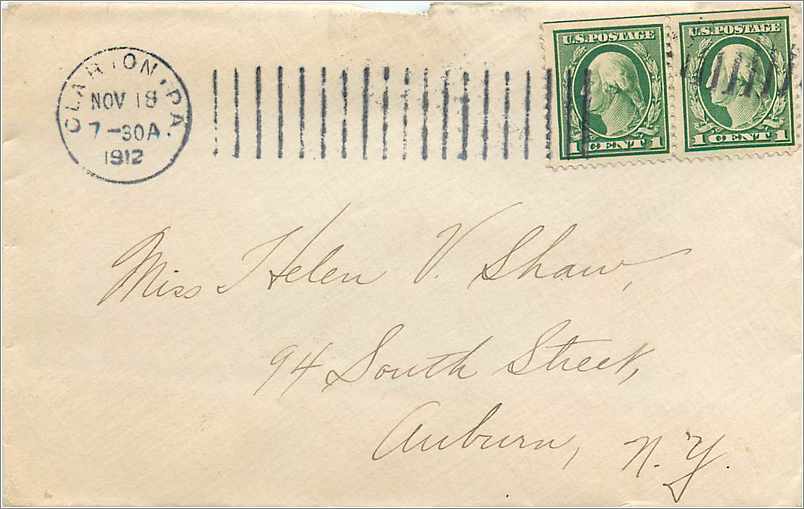 CLARION, PA.
NOV 18
7-30A
1912
U.S. POSTAGE
1 CENT 1
U.S. POSTAGE
1 CENT 1
Miss Helen V. Shaw,
94 South Street,
Auburn, N.Y.